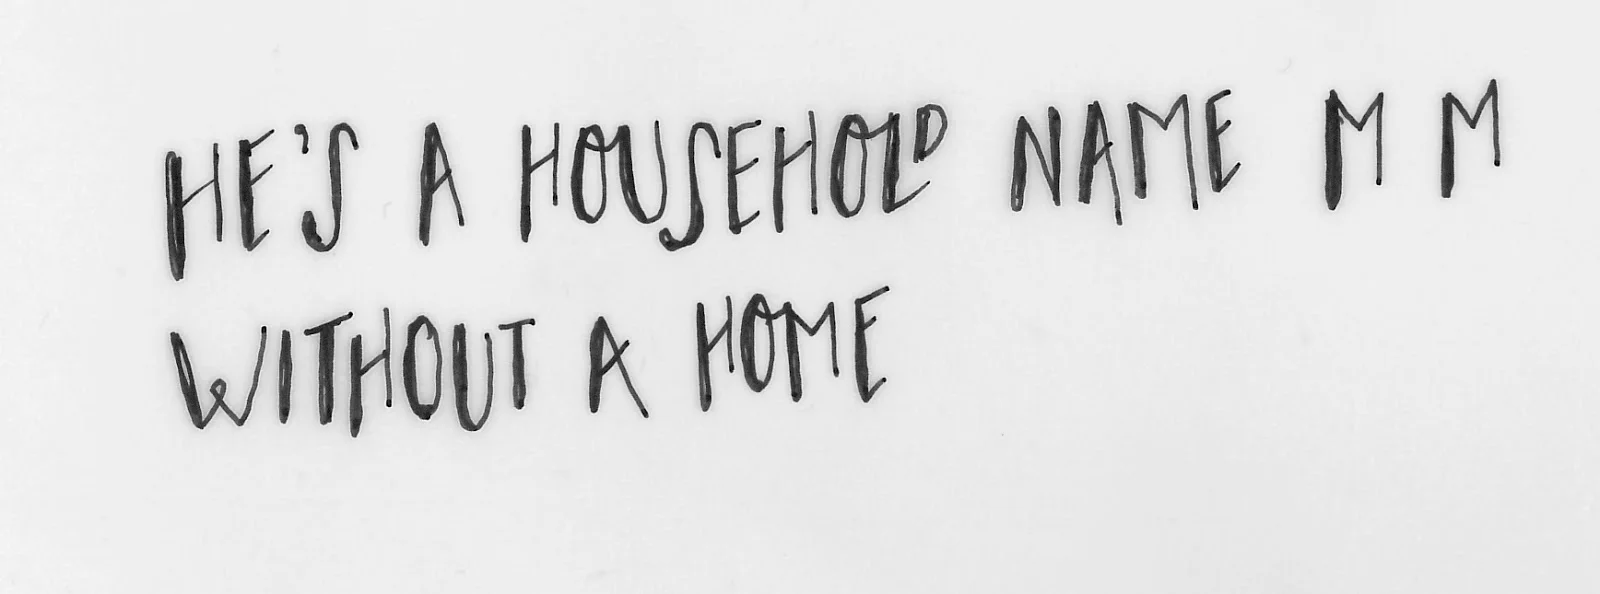 HE'S A HOUSEHOLD NAME M M
WITHOUT A HOME